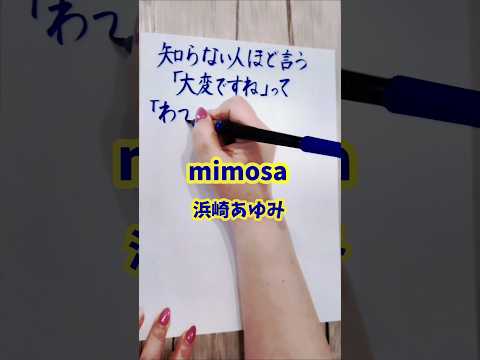 知らない人ほど言う
「大変ですね」って
「わて
mimosa
浜崎あゆみ